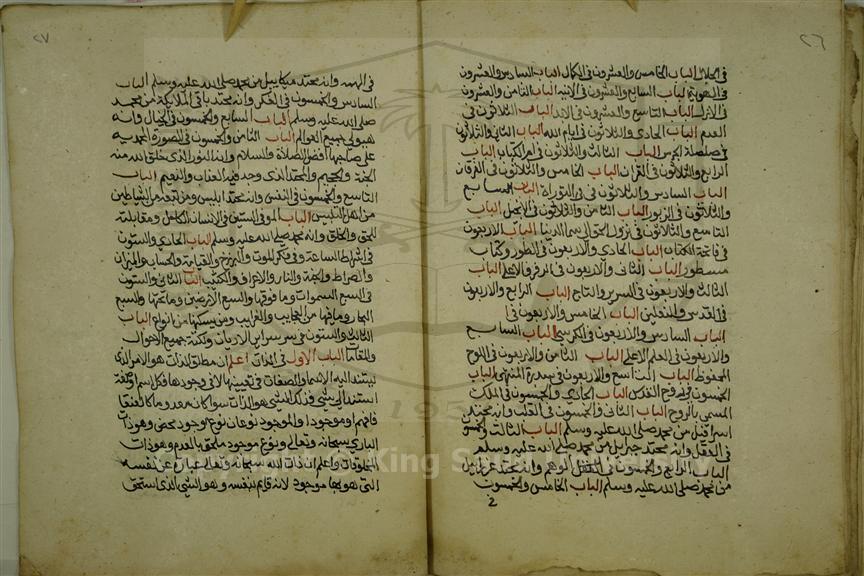 ٢٦
في الجلال الباب الخامس والعشرون في الكمال الباب السادس والعشرون
في الهوية الباب السابع والعشرون في الانية الباب الثامن والعشرون
في الازل الباب التاسع والعشرون في الابد الباب الثلاثون في
القدم الباب الحادي والثلاثون في ايام الله الباب الثاني والثلاثون
في صلصلة الجرس الباب الثالث والثلاثون في ام الكتاب الباب
الرابع والثلاثون في القران الباب الخامس والثلاثون في الفرقان
الباب السادس والثلاثون في التوراة الباب السابع
والثلاثون في الزبور الباب الثامن والثلاثون في الانجيل الباب
التاسع والثلاثون في نزول الحق الى سماء الدنيا الباب الاربعون
في فاتحة الكتاب الباب الحادي والاربعون في الطور وكتاب
مسطور الباب الثاني والاربعون في الرفرف الاعلى الباب
الثالث والاربعون في السرير والتاج الباب الرابع والاربعون
في القدمين والنعلين الباب الخامس والاربعون في
الباب السادس والاربعون في الكرسي الباب السابع
والاربعون في القلم الاعلى الباب الثامن والاربعون في اللوح
المحفوظ الباب التاسع والاربعون في سدرة المنتهى الباب
الخمسون في روح القدس الباب الحادي والخمسون في الملك
المسمى بالروح الباب الثاني والخمسون في القلب وانه محتد
اسرافيل من محمد صلى الله عليه وسلم الباب الثالث والخمسون
في العقل وانه محتد جبريل من محمد صلى الله عليه وسلم
الباب الرابع والخمسون في الوهم وانه محتد عزرائيل
من محمد صلى الله عليه وسلم الباب الخامس والخمسون
٢٧
في الهمة وانه محتد ميكاييل من محمد صلى الله عليه وسلم الباب
السادس والخمسون في الفكر وانه محتد باقي الملايكة من محمد
صلى الله عليه وسلم الباب السابع والخمسون في الخيال وانه
هيولى جميع العوالم الباب الثامن والخمسون في الصورة المحمدية
على صاحبها افضل الصلاة والسلام وانه النور الذي خلق الله منه
الجنة والجحيم والمحتد الذي وجد فيه العذاب والنعيم الباب
التاسع والخمسون في النفس وانه محتد ابليس ومن تبعه من الشياطين
من اهل التلبيس الباب الموفي الستين في الانسان الكامل ومقابلته
للحق والخلق وانه محمد صلى الله عليه وسلم الباب الحادي والستون
في اشراط الساعة وفي ذكر الموت والبرزخ والقيامة والحساب والميزان
والصراط والجنة والنار والاعراف والكثيب الباب الثاني والستون
في السبع السموات وما فوقها والسبع الارضين وما تحتها والسبع
البحار وما فيها من العجايب والغرايب ومن يسكنها من انواع الباب
الثالث والستون في سر سراير الاديان ونكتة جميع الاحوال
والمقامات الباب الاول في الذات اعلم ان مطلق الذات هو الامر الذي
تستند اليه الاسماء والصفات في تعيينها لا في وجودها فكل اسم او صفة
استند الى شيء فذلك الشيء هو الذات سواء كان معدوما كالعنقاء
فافهم او موجودا والموجود نوعان نوع موجود محض وهو ذات
الباري سبحانه وتعالى ونوع موجود ملحق بالعدم وهو ذات
المخلوقات واعلم ان ذات الله سبحانه وتعالى عبارة عن نفسه
التي هو بها موجود لانه قايم بنفسه وهو الشيء الذي استحق